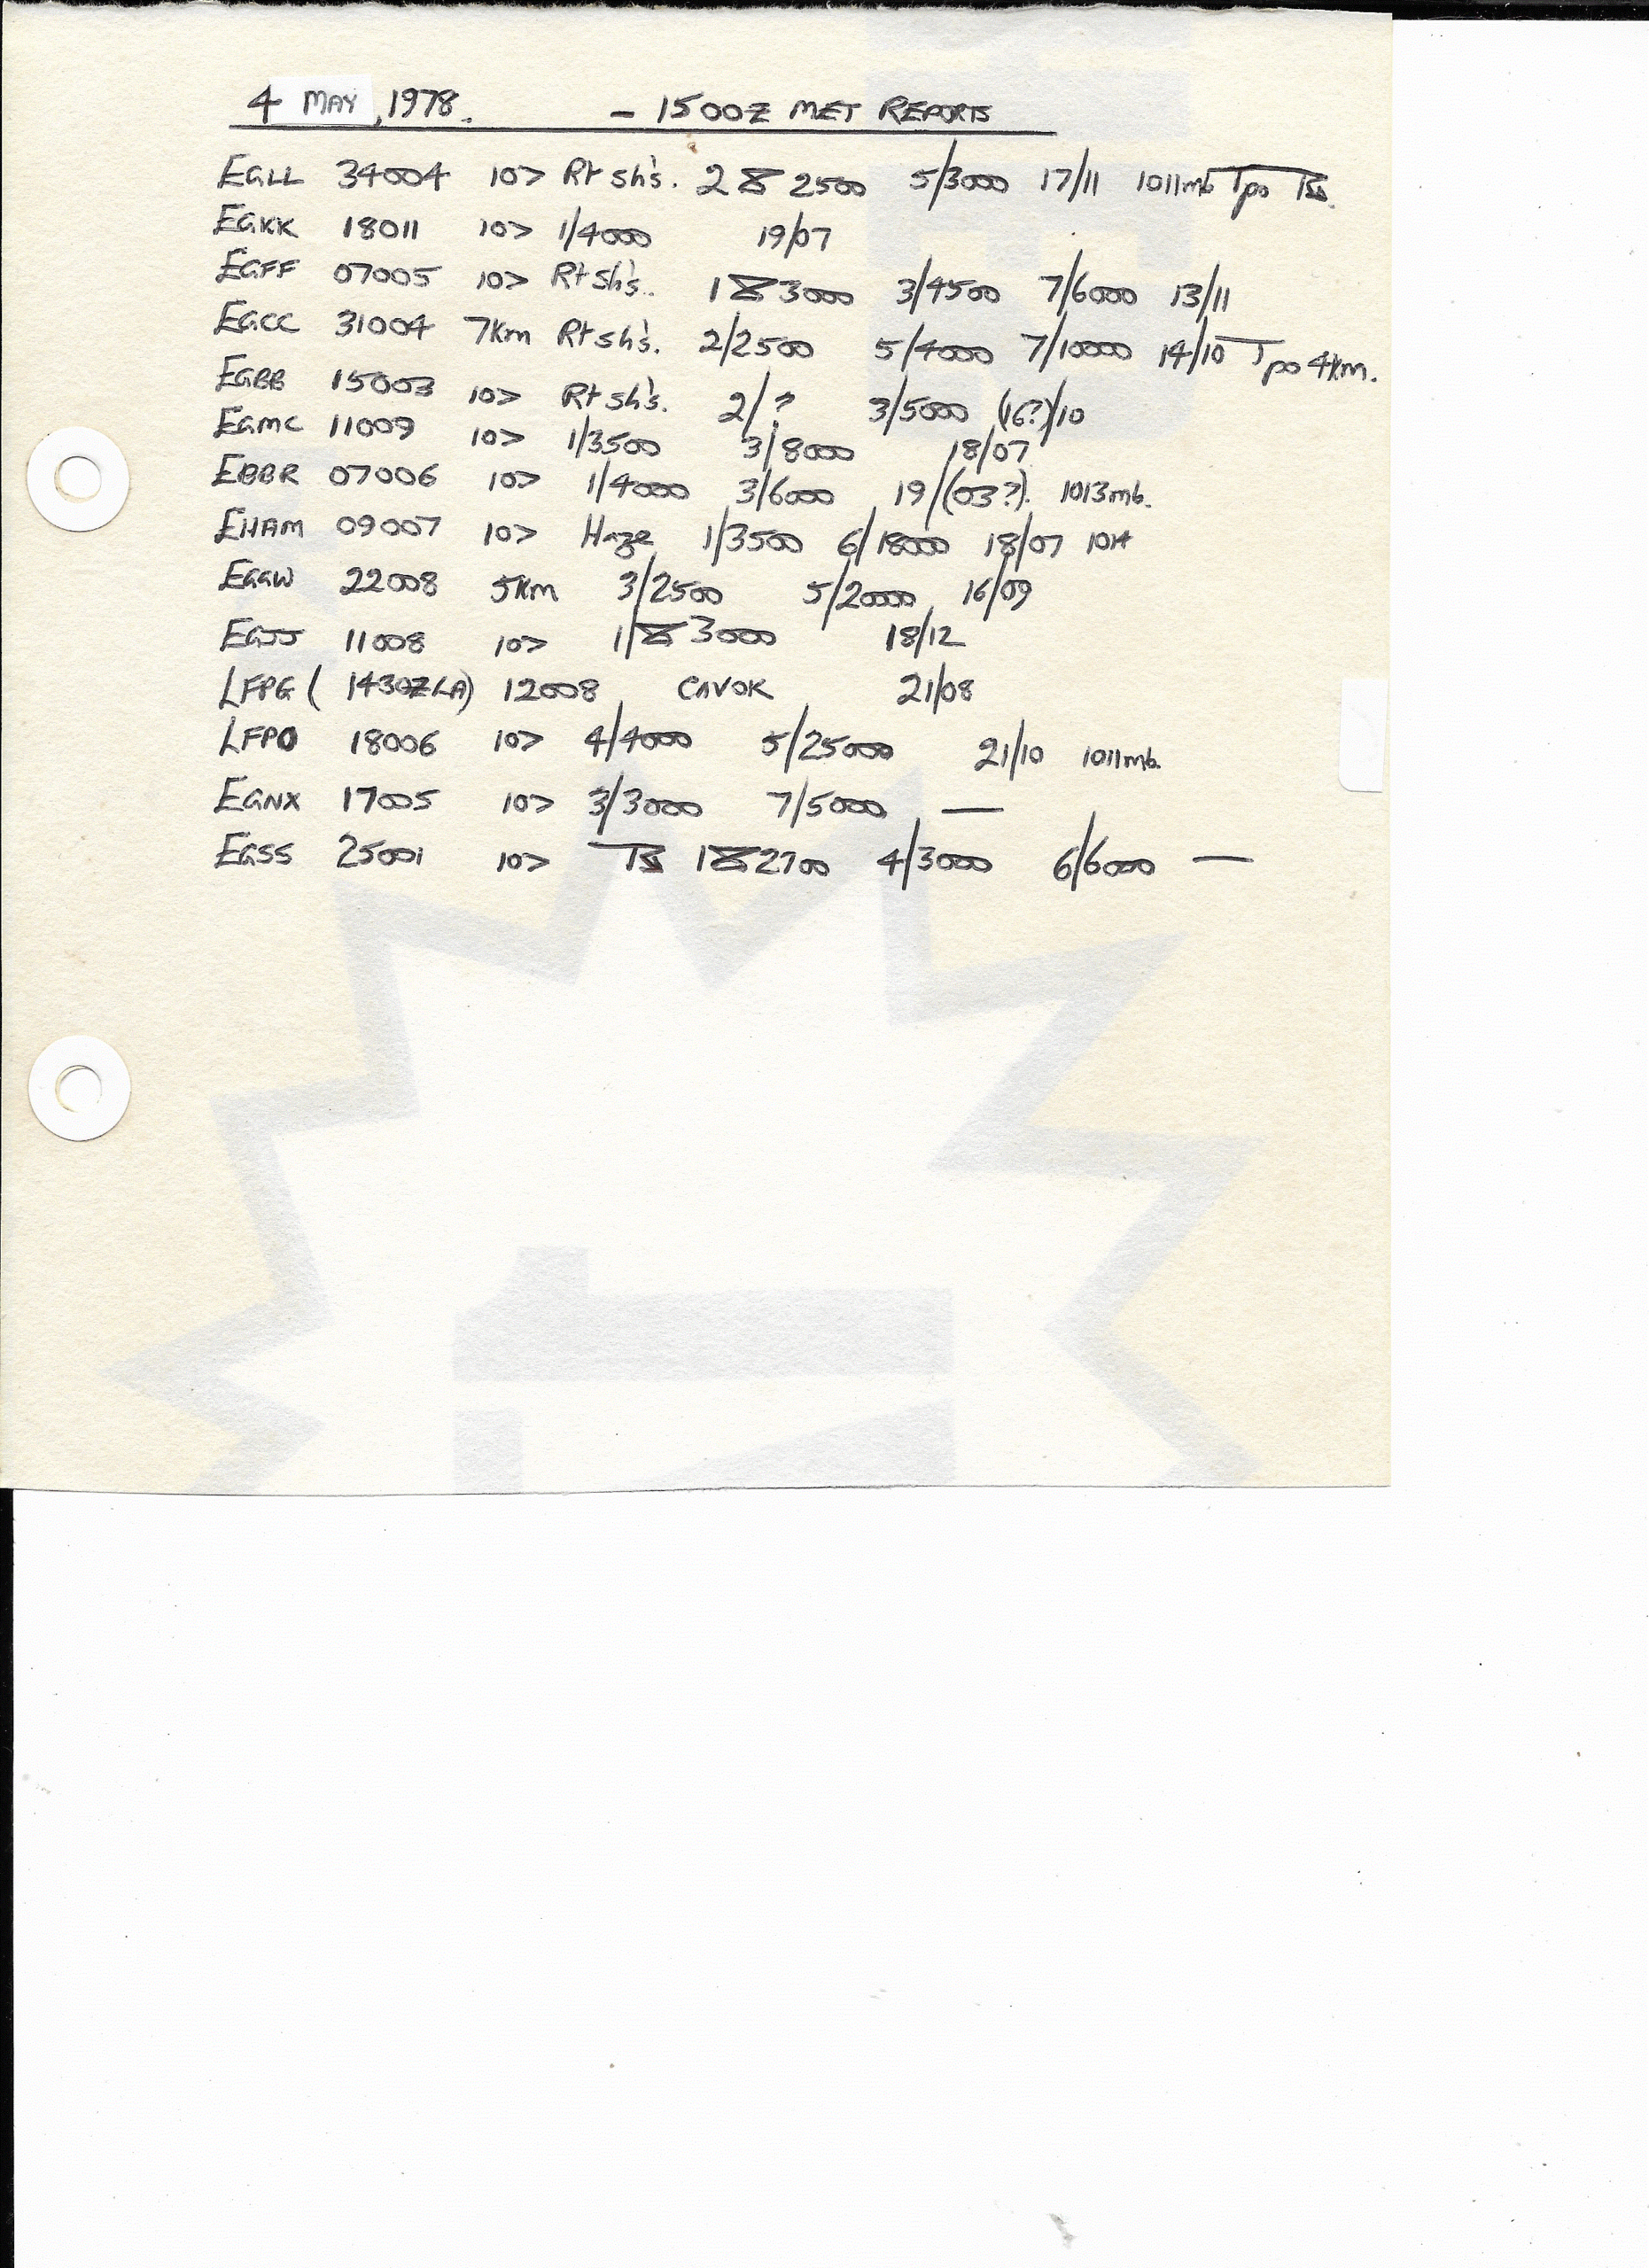 4 MAY, 1978. - 1500Z MET REPORTS
EGLL 34004 10> R+sh's. 2 2500 5/3000 17/11 1011mb Tpo TS.
EGKK 18011 10> 1/4000 19/07
EGFF 07005 10> R+sh's.. 1 3000 3/4500 7/6000 13/11
EGCC 31004 7km R+sh's. 2/2500 5/4000 7/10000 14/10 Tpo 4km.
EGBB 15003 10> R+sh's. 2/? 3/5000 (16?)/10
EGMC 11009 10> 1/3500 3/8000 18/07
EBBR 07006 10> 1/4000 3/6000 19/(03?). 1013mb.
EHAM 09007 10> Haze 1/3500 6/18000 18/07 1014
EGGW 22008 5km 3/2500 5/20000 16/09
EGJJ 11008 10> 1/ 3000 18/12
LFPG (1430Z LA) 12008 CAVOK 21/08
LFPO 18006 10> 4/4000 5/25000 21/10 1011mb.
EGNX 17005 10> 3/3000 7/5000 —
EGSS 25001 10> TS 1 2700 4/3000 6/6000 —